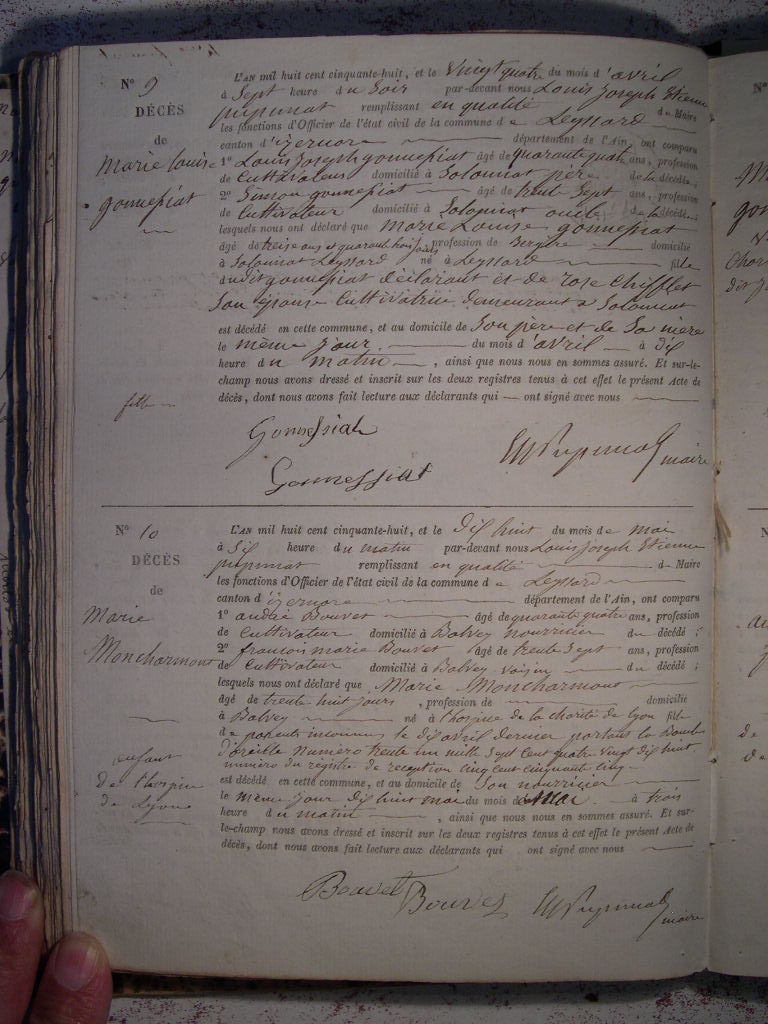 N° 9
DÉCÈS
de
Marie Louise
gonnessiat
fille
L'AN mil huit cent cinquante-huit, et le vingt quatre du mois d'avril
à Sept heure du Soir par-devant nous Louis Joseph Etienne
pupunat remplissant en qualité de Maire
les fonctions d'Officier de l'état civil de la commune de Leyssard
canton d'izernore département de l'Ain, ont comparu
1° Louis Joseph gonnessiat âgé de quarante quatre ans, profession
de Cultivateur domicilié à Solomiat père de la décédée;
2° Simon gonnessiat âgé de trente Sept ans, profession
de Cultivateur domicilié à Solomiat oncle de la décédée;
lesquels nous ont déclaré que Marie Louise gonnessiat
âgé de treise ans et quarante trois jours, profession de Bergère domicilié
à Solomiat Leyssard né à Leyssard fille
dudit gonnessiat déclarant et de rose Chifflet
Son épouse Cultivatrice demeurant à Solomiat
est décédé en cette commune, et au domicile de Son père et de Sa mère
le même jour du mois d'avril à dix
heure du matin, ainsi que nous nous en sommes assuré. Et sur-le-
champ nous avons dressé et inscrit sur les deux registres tenus à cet effet le présent Acte de
décès, dont nous avons fait lecture aux déclarants qui ont signé avec nous
Gonnessiat
Gonnessiat
maire
N° 10
DÉCÈS
de
Marie
Moncharmont
enfant
de l'hospice
de Lyon
L'AN mil huit cent cinquante-huit, et le dix huit du mois de mai
à Six heure du matin par-devant nous Louis Joseph Etienne
pupunat remplissant en qualité de Maire
les fonctions d'Officier de l'état civil de la commune de Leyssard
canton d'izernore département de l'Ain, ont comparu
1° andré Bouvet âgé de quarante quatre ans, profession
de Cultivateur domicilié à Balvey nourricier du décédé;
2° francois marie Bouvet âgé de trente Sept ans, profession
de Cultivateur domicilié à Balvey voisin du décédé;
lesquels nous ont déclaré que Marie Moncharmont
âgé de trente huit jours, profession de domicilié
à Balvey né à l'hospice de la charité de Lyon fille
de parents inconnus le dix avril dernier portant la Boucle
d'oreille numéro trente un mille Sept cent quatre vingt dix huit
numéro du registre de reception cinq cent cinquante cinq
est décédé en cette commune, et au domicile de Son nourricier
le même jour dix huit mai du mois de Mai à trois
heure du matin, ainsi que nous nous en sommes assuré. Et sur-
le-champ nous avons dressé et inscrit sur les deux registres tenus à cet effet le présent Acte de
décès, dont nous avons fait lecture aux déclarants qui ont signé avec nous
Bouvet Bouvet
maire